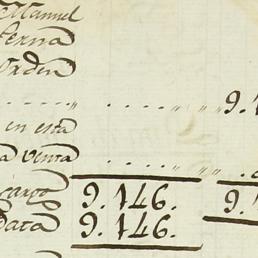 Manuel
Perna
Orden
9.
en esta
a venta
cargo 9.146. 9.
Data 9.146.